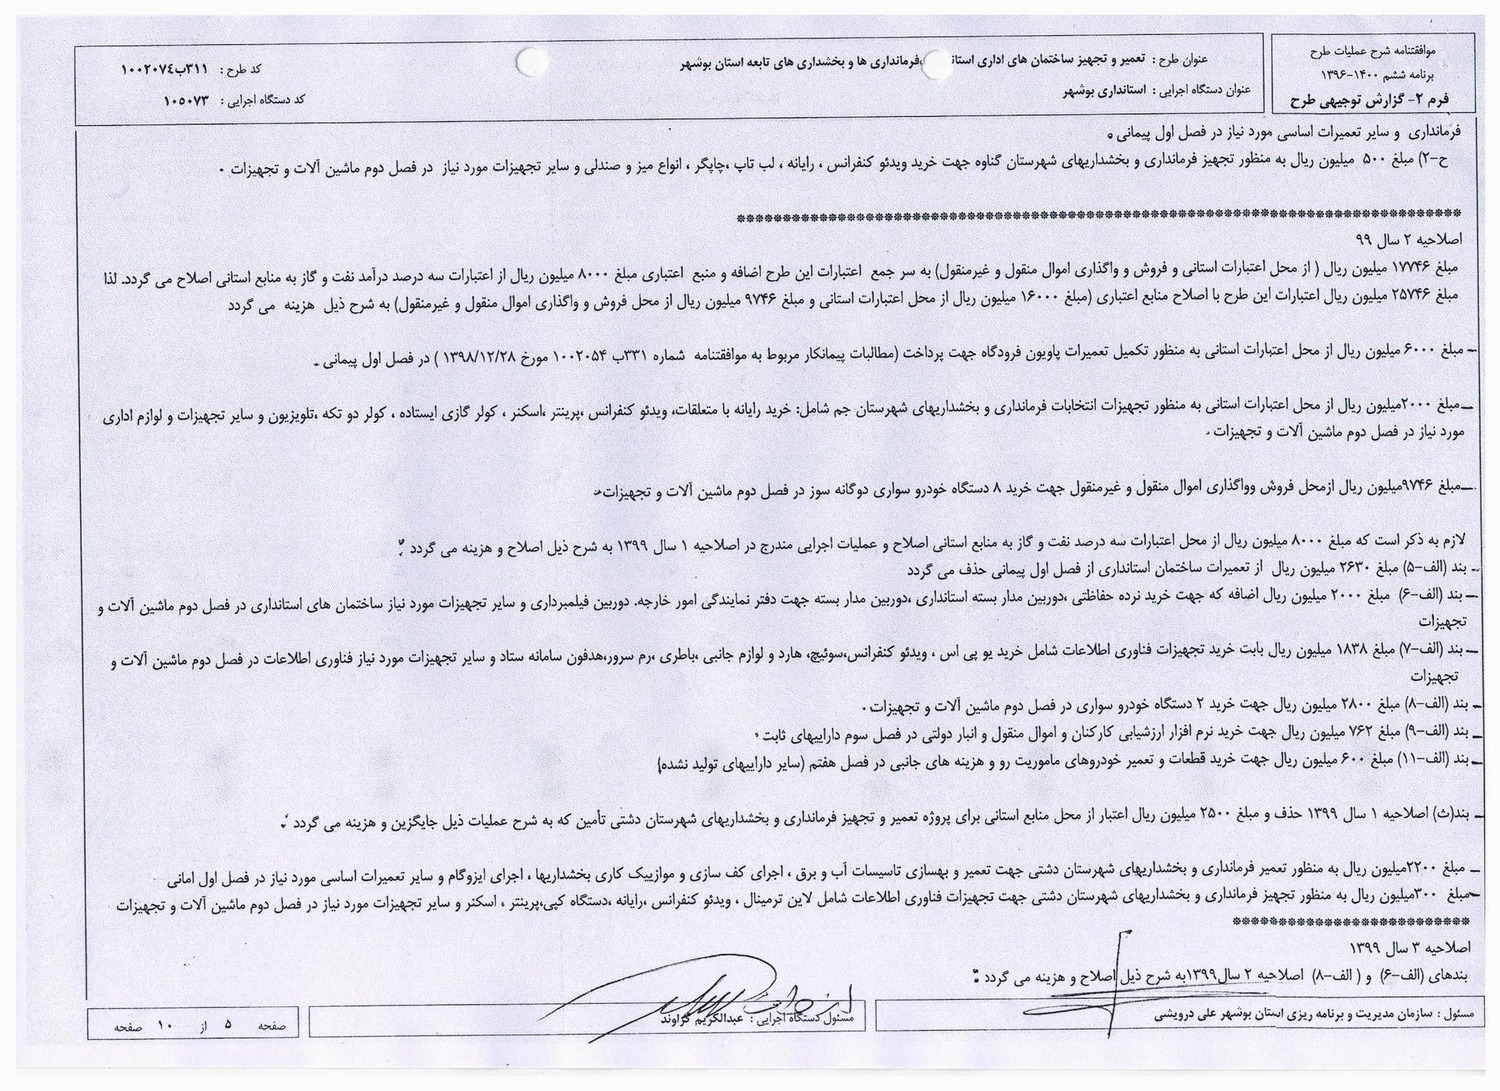 موافقتنامه شرح عملیات طرح
برنامه ششم ۱۴۰۰-۱۳۹۶
فرم ۲- گزارش توجیهی طرح
عنوان طرح : تعمیر و تجهیز ساختمان های اداری استاند فرمانداری ها و بخشداری های تابعه استان بوشهر
عنوان دستگاه اجرایی : استانداری بوشهر
کد طرح : ۳۱۱ب۱۰۰۲۰۷۴
کد دستگاه اجرایی : ۱۰۵۰۷۳
فرمانداری و سایر تعمیرات اساسی مورد نیاز در فصل اول پیمانی .
ح-۲) مبلغ ۵۰۰ میلیون ریال به منظور تجهیز فرمانداری و بخشداریهای شهرستان گناوه جهت خرید ویدئو کنفرانس ، رایانه ، لب تاپ ،چاپگر ، انواع میز و صندلی و سایر تجهیزات مورد نیاز در فصل دوم ماشین آلات و تجهیزات .
********************************************************************************
اصلاحیه ۲ سال ۹۹
مبلغ ۱۷۷۴۶ میلیون ریال ( از محل اعتبارات استانی و فروش و واگذاری اموال منقول و غیرمنقول) به سر جمع اعتبارات این طرح اضافه و منبع اعتباری مبلغ ۸۰۰۰ میلیون ریال از اعتبارات سه درصد درآمد نفت و گاز به منابع استانی اصلاح می گردد. لذا
مبلغ ۲۵۷۴۶ میلیون ریال اعتبارات این طرح با اصلاح منابع اعتباری (مبلغ ۱۶۰۰۰ میلیون ریال از محل اعتبارات استانی و مبلغ ۹۷۴۶ میلیون ریال از محل فروش و واگذاری اموال منقول و غیرمنقول) به شرح ذیل هزینه می گردد
– مبلغ ۶۰۰۰ میلیون ریال از محل اعتبارات استانی به منظور تکمیل تعمیرات پاویون فرودگاه جهت پرداخت (مطالبات پیمانکار مربوط به موافقتنامه شماره ۳۳۱ب ۱۰۰۲۰۵۴ مورخ ۱۳۹۸/۱۲/۲۸ ) در فصل اول پیمانی .
–مبلغ ۲۰۰۰میلیون ریال از محل اعتبارات استانی به منظور تجهیزات انتخابات فرمانداری و بخشداریهای شهرستان جم شامل: خرید رایانه با متعلقات، ویدئو کنفرانس ،پرینتر ،اسکنر ، کولر گازی ایستاده ، کولر دو تکه ،تلویزیون و سایر تجهیزات و لوازم اداری
مورد نیاز در فصل دوم ماشین آلات و تجهیزات .
–مبلغ ۹۷۴۶میلیون ریال ازمحل فروش وواگذاری اموال منقول و غیرمنقول جهت خرید ۸ دستگاه خودرو سواری دوگانه سوز در فصل دوم ماشین آلات و تجهیزات.
لازم به ذکر است که مبلغ ۸۰۰۰ میلیون ریال از محل اعتبارات سه درصد نفت و گاز به منابع استانی اصلاح و عملیات اجرایی مندرج در اصلاحیه ۱ سال ۱۳۹۹ به شرح ذیل اصلاح و هزینه می گردد :
- بند (الف-۵) مبلغ ۲۶۳۰ میلیون ریال از تعمیرات ساختمان استانداری از فصل اول پیمانی حذف می گردد
– بند (الف-۶) مبلغ ۲۰۰۰ میلیون ریال اضافه که جهت خرید نرده حفاظتی ،دوربین مدار بسته استانداری ،دوربین مدار بسته جهت دفتر نمایندگی امور خارجه. دوربین فیلمبرداری و سایر تجهیزات مورد نیاز ساختمان های استانداری در فصل دوم ماشین آلات و
تجهیزات
– بند (الف-۷) مبلغ ۱۸۳۸ میلیون ریال بابت خرید تجهیزات فناوری اطلاعات شامل خرید یو پی اس ، ویدئو کنفرانس،سوئیچ، هارد و لوازم جانبی ،باطری ،رم سرور،هدفون سامانه ستاد و سایر تجهیزات مورد نیاز فناوری اطلاعات در فصل دوم ماشین آلات و
تجهیزات
– بند (الف-۸) مبلغ ۲۸۰۰ میلیون ریال جهت خرید ۲ دستگاه خودرو سواری در فصل دوم ماشین آلات و تجهیزات .
– بند (الف-۹) مبلغ ۷۶۲ میلیون ریال جهت خرید نرم افزار ارزشیابی کارکنان و اموال منقول و انبار دولتی در فصل سوم داراییهای ثابت .
– بند (الف-۱۱) مبلغ ۶۰۰ میلیون ریال جهت خرید قطعات و تعمیر خودروهای ماموریت رو و هزینه های جانبی در فصل هفتم (سایر داراییهای تولید نشده)
– بند(ث) اصلاحیه ۱ سال ۱۳۹۹ حذف و مبلغ ۲۵۰۰ میلیون ریال اعتبار از محل منابع استانی برای پروژه تعمیر و تجهیز فرمانداری و بخشداریهای شهرستان دشتی تأمین که به شرح عملیات ذیل جایگزین و هزینه می گردد :
– مبلغ ۲۲۰۰میلیون ریال به منظور تعمیر فرمانداری و بخشداریهای شهرستان دشتی جهت تعمیر و بهسازی تاسیسات آب و برق ، اجرای کف سازی و موازییک کاری بخشداریها ، اجرای ایزوگام و سایر تعمیرات اساسی مورد نیاز در فصل اول امانی
–مبلغ ۳۰۰میلیون ریال به منظور تجهیز فرمانداری و بخشداریهای شهرستان دشتی جهت تجهیزات فناوری اطلاعات شامل لاین ترمینال ، ویدئو کنفرانس ،رایانه ،دستگاه کپی،پرینتر ، اسکنر و سایر تجهیزات مورد نیاز در فصل دوم ماشین آلات و تجهیزات
**************************
اصلاحیه ۳ سال ۱۳۹۹
بندهای (الف-۶) و ( الف-۸) اصلاحیه ۲ سال۱۳۹۹به شرح ذیل اصلاح و هزینه می گردد :
مسئول : سازمان مدیریت و برنامه ریزی استان بوشهر علی درویشی
مسئول دستگاه اجرایی : عبدالکریم گراوند
صفحه ۵ از ۱۰ صفحه